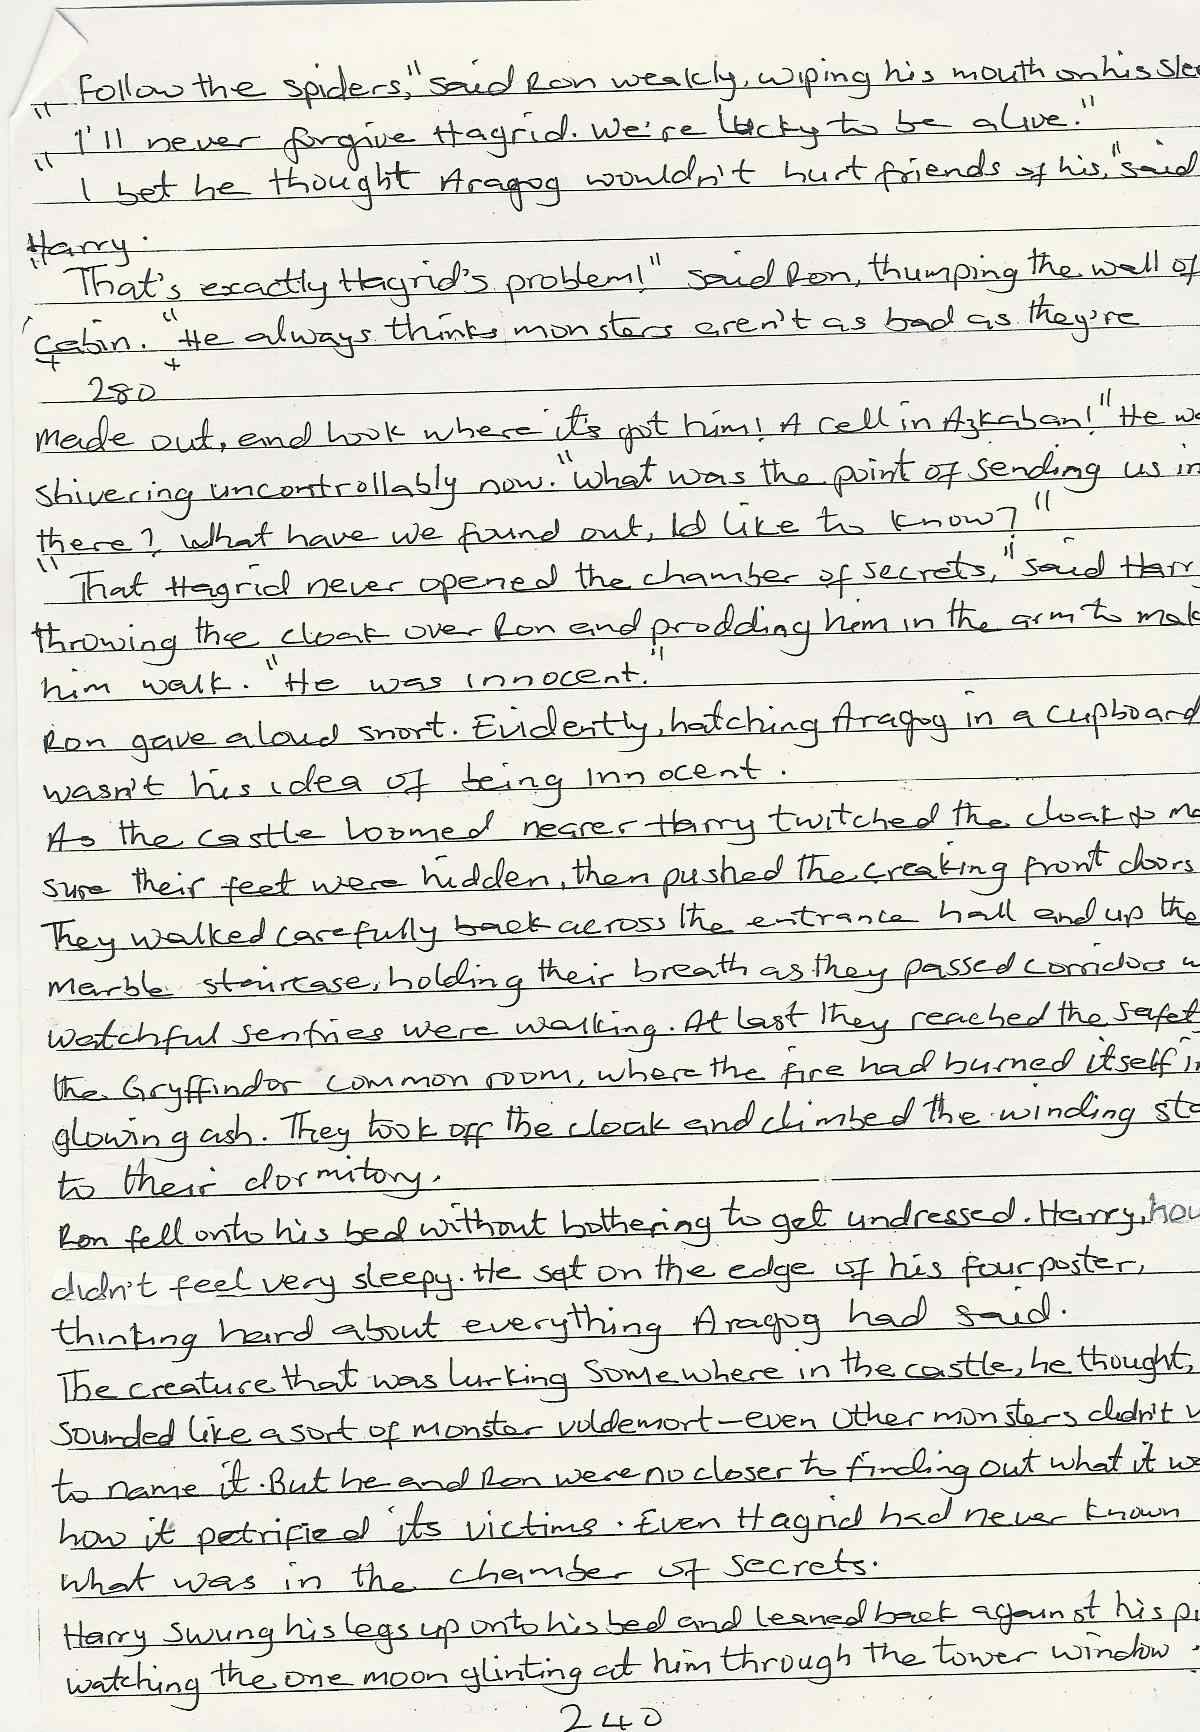 "Follow the spiders," said Ron weakly, wiping his mouth on his slee
"I'll never forgive Hagrid. We're lucky to be alive."
"I bet he thought Aragog wouldn't hurt friends of his," said
Harry.
"That's exactly Hagrid's problem!" said Ron, thumping the wall of
cabin. "He always thinks monsters aren't as bad as they're
280
made out, and look where it's got him! A cell in Azkaban!" He wa
shivering uncontrollably now. "What was the point of sending us in
there? What have we found out, Id like to know?"
"That Hagrid never opened the chamber of secrets," said Harry
throwing the cloak over Ron and prodding him in the arm to mak
him walk. "He was innocent."
Ron gave a loud snort. Evidently, hatching Aragog in a cupboard
wasn't his idea of being innocent.
As the castle loomed nearer Harry twitched the cloak to ma
sure their feet were hidden, then pushed the creaking front doors
They walked carefully back across the entrance hall and up the
marble staircase, holding their breath as they passed corridors w
watchful sentries were walking. At last they reached the safet
the Gryffindor common room, where the fire had burned itself in
glowing ash. They took off the cloak and climbed the winding sta
to their dormitory.
Ron fell onto his bed without bothering to get undressed. Harry, how
didn't feel very sleepy. He sat on the edge of his fourposter,
thinking hard about everything Aragog had said.
The creature that was lurking somewhere in the castle, he thought,
sounded like a sort of monster voldemort-even other monsters didn't w
to name it. But he and Ron were no closer to finding out what it wa
how it petrified its victims. Even Hagrid had never known
what was in the chamber of secrets.
Harry swung his legs up onto his bed and leaned back against his pi
watching the one moon glinting at him through the tower window.
240